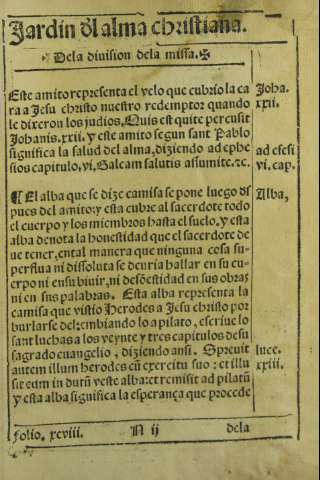 Jardin dl alma christiana.
Dela division dela missa.✠
Este amito representa el velo que cubrio la ca
ra a Jesu christo nuestro redemptor quando
le dixeron los judios. Quis est qui te percusit
Johanis.xxii. y este amito segun sant Pablo
significa la salud del alma, diziendo ad ephe
sios capitulo.vi. Galeam salutis assumite.ꝛc.
Joha.
xxii.
ad efesi
vi. cap.
¶ El alba que se dize camisa se pone luego ds
pues del amito: y esta cubre al sacerdote todo
el cuerpo y los miembros hasta el suelo, y esta
alba denota la honestidad que el sacerdote de
ue tener, en tal manera que ninguna cosa su-
perflua ni dissoluta se deuria hallar en su cu-
erpo ni en su biuir, ni desõestidad en sus obras
ni en sus palabras. Esta alba representa la
camisa que vistio Herodes a Jesu christo por
burlarse del: embiando lo a pilato, escriue lo
sant luchas a los veynte y tres capitulos de su
sagrado euangelio, diziendo ansi. Spreuit
autem illum herodes cũ exercitu suo: et illu
sit eum indutũ veste alba: et remisit ad pilatũ
y esta alba significa la esperança que procede
Alba,
luce.
xxiii.
folio. xcviii. N ij dela